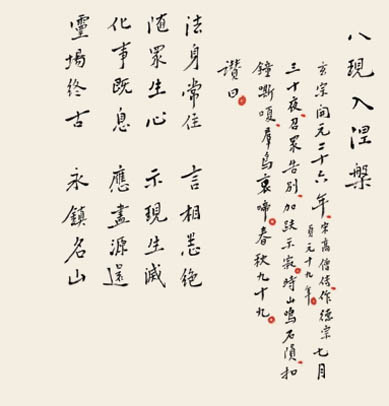 八現入涅槃
玄宗開元二十六年宋高僧傳作德宗貞元十九年七月
三十夜召眾告別加趺示寂時山鳴石隕扣
鐘嘶嗄羣鳥哀啼春秋九十九
讚曰
法身常住 言相悉絕
隨眾生心 示現生滅
化事既息 應盡源還
靈場終古 永鎮名山